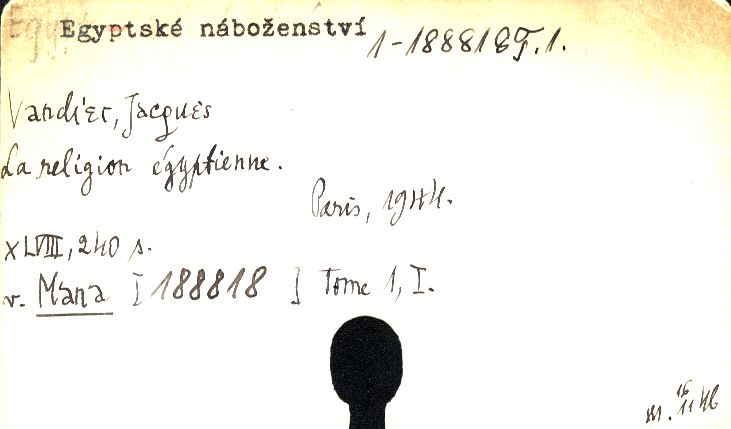 Egyptské náboženství
1-188818 T.1.
Vandier, Jacques
La religion égyptienne.
Paris, 1944.
XLVIII, 240 s.
v. Mana [188818] Tome 1, I.